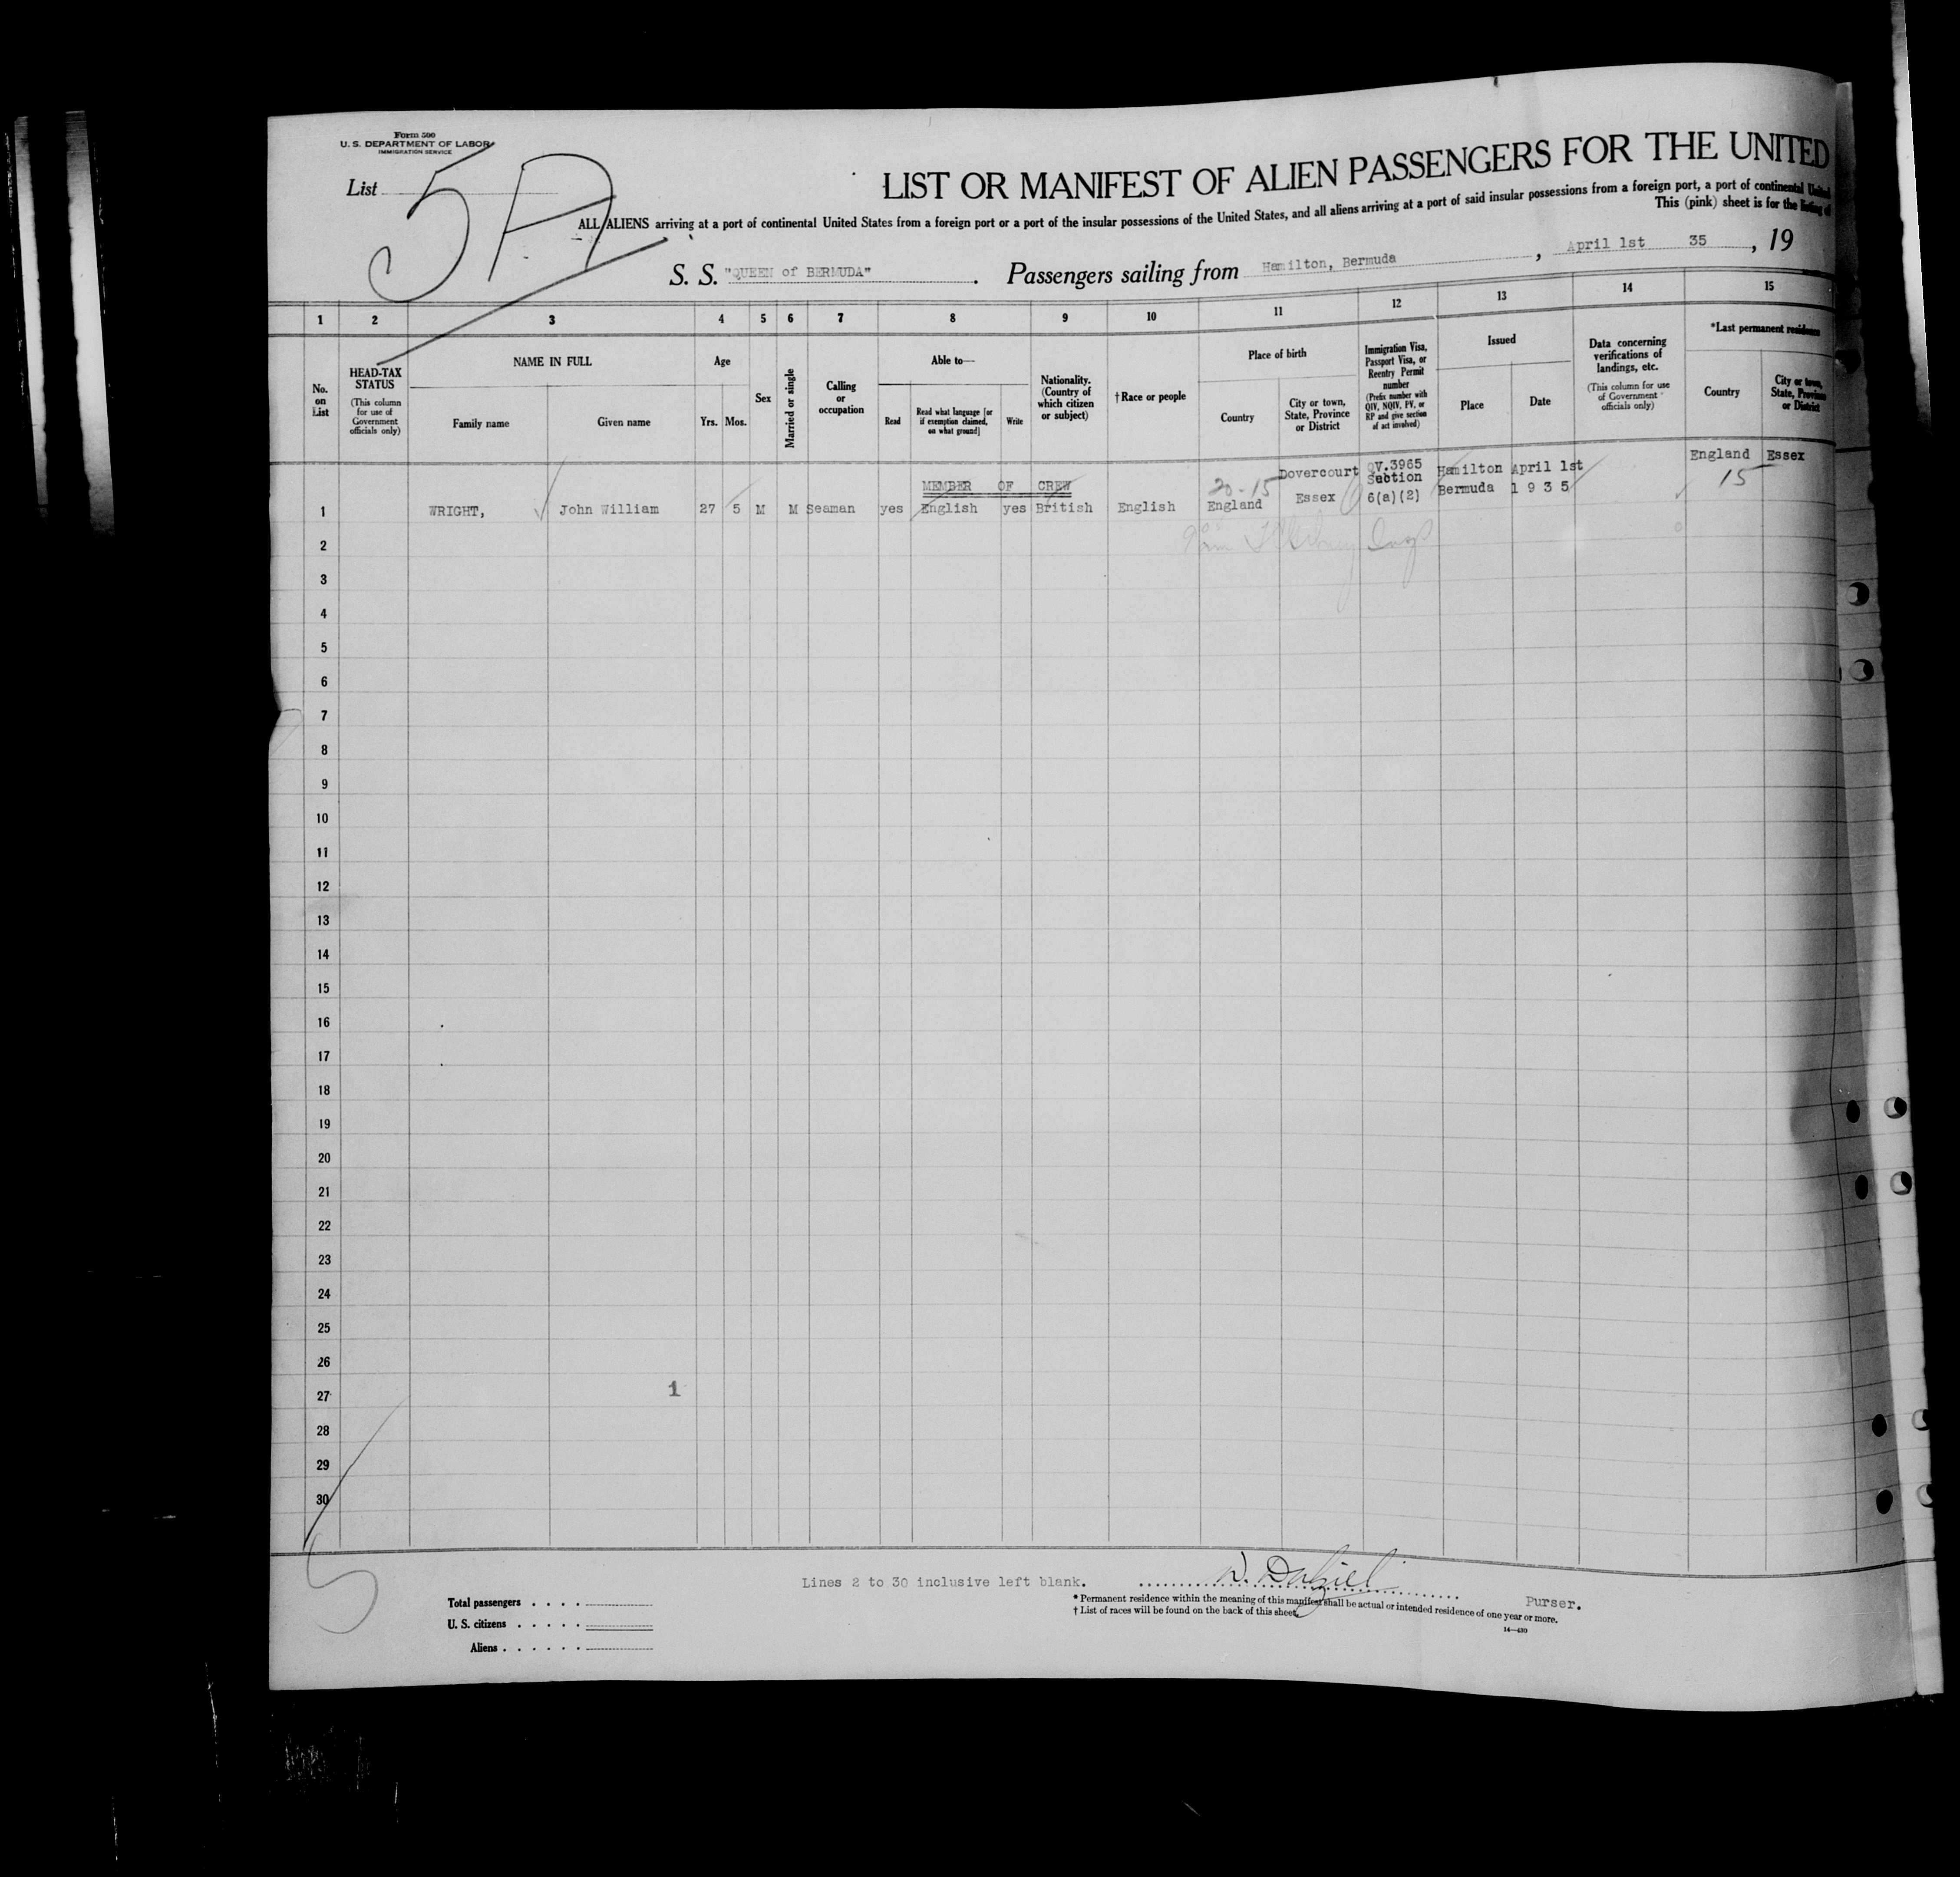 Form 500
U. S. DEPARTMENT OF LABOR
IMMIGRATION SERVICE
List 5A
LIST OR MANIFEST OF ALIEN PASSENGERS FOR THE UNITED
ALL ALIENS arriving at a port of continental United States from a foreign port or a port of the insular possessions of the United States, and all aliens arriving at a port of said insular possessions from a foreign port, a port of continental United
This (pink) sheet is for the listing of
S. S. "QUEEN of BERMUDA". Passengers sailing from Hamilton, Bermuda, April 1st 35, 19
1 2 3 4 5 6 7 8 9 10 11 12 13 14 15
No. on List
HEAD-TAX STATUS
(This column for use of Government officials only)
NAME IN FULL
Family name
Given name
Age
Yrs. Mos.
Sex
Married or single
Calling or occupation
Able to—
Read
Read what language [or if exemption claimed, on what ground]
Write
Nationality. (Country of which citizen or subject)
†Race or people
Place of birth
Country
City or town, State, Province or District
Immigration Visa, Passport Visa, or Reentry Permit number
(Prefix number with QIV, NQIV, PV, or RP and give section of act involved)
Issued
Place
Date
Data concerning verifications of landings, etc.
(This column for use of Government officials only)
*Last permanent residence
Country
City or town, State, Province or District
MEMBER OF CREW
20-15
Dovercourt
Essex
QV.3965
Section
6(a)(2)
Hamilton April 1st
Bermuda 1935
England Essex
15
1 WRIGHT, John William 27 5 M M Seaman yes English yes British English England
2
3
4
5
6
7
8
9
10
11
12
13
14
15
16
17
18
19
20
21
22
23
24
25
26
27 1
28
29
30
Lines 2 to 30 inclusive left blank.
W. Dalziel
Purser.
Total passengers
U. S. citizens
Aliens
* Permanent residence within the meaning of this manifest shall be actual or intended residence of one year or more.
† List of races will be found on the back of this sheet.
14—430